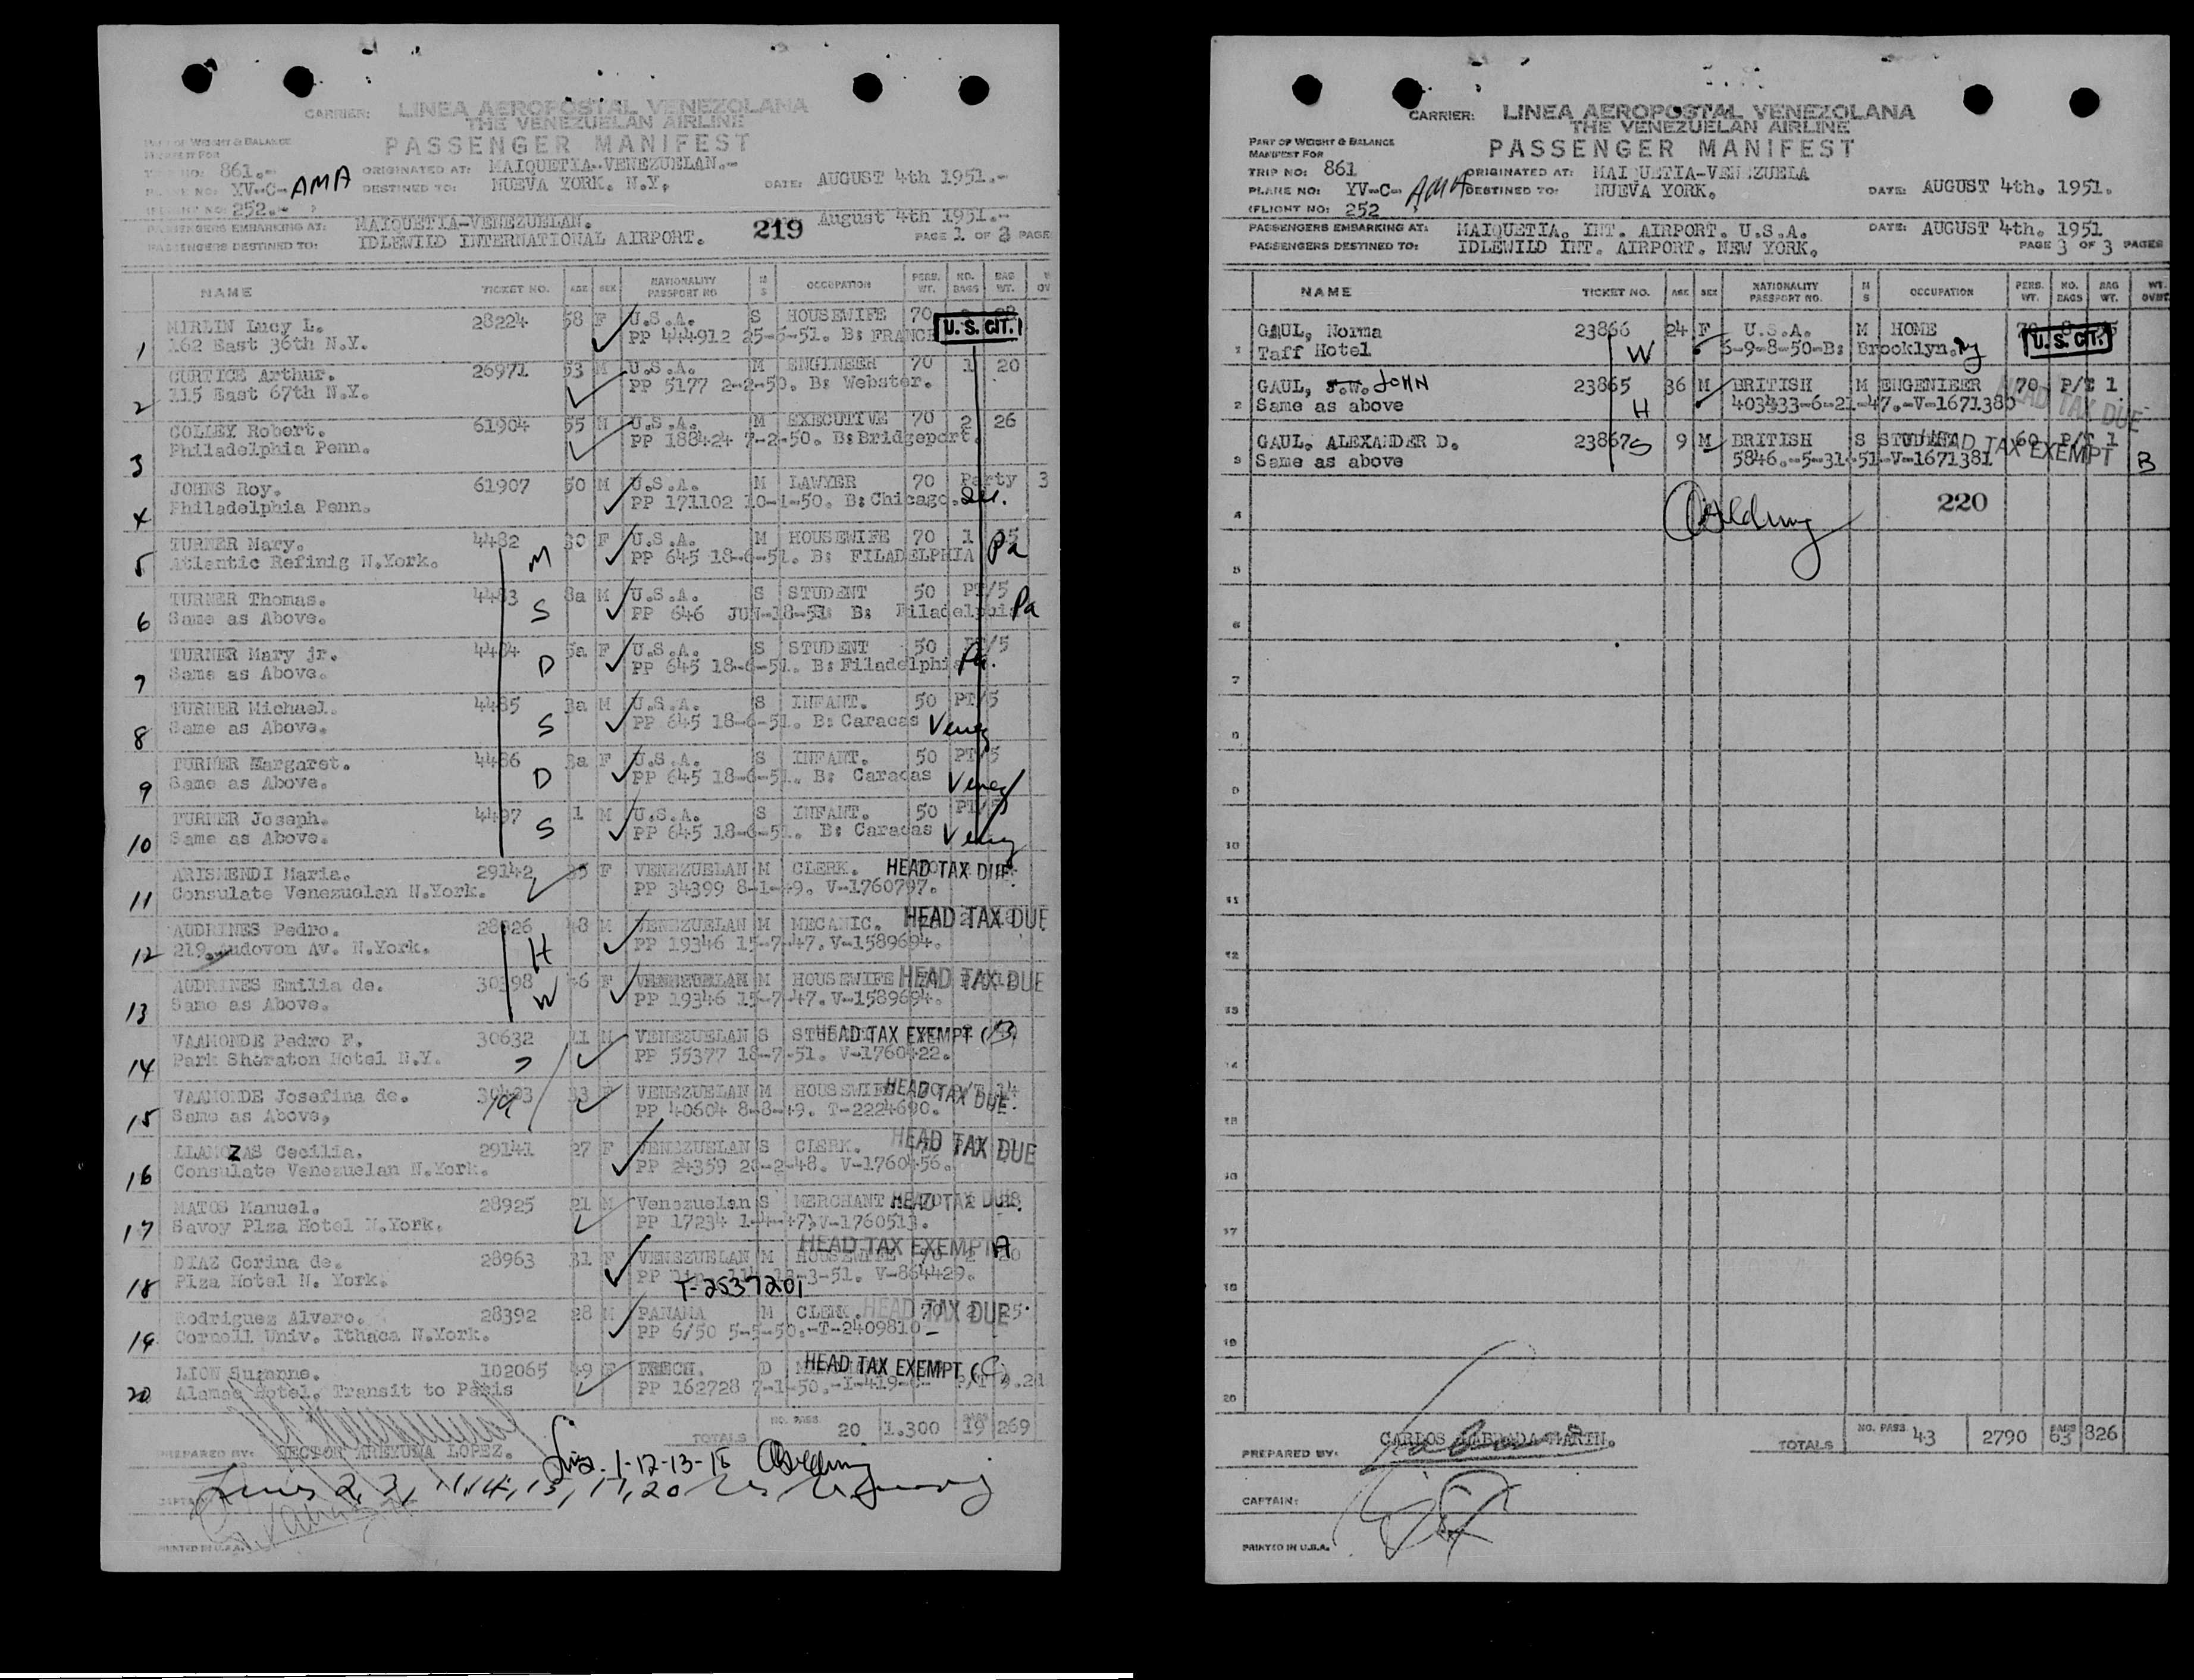 CARRIER: LINEA AEROPOSTAL VENEZOLANA
THE VENEZUELAN AIRLINE
PASSENGER MANIFEST
PART OF WEIGHT & BALANCE
MANIFEST FOR
TRIP NO: 861.- ORIGINATED AT: MAIQUETIA-VENEZUELAN.-
PLANE NO: YV-C-AMA DESTINED TO: NUEVA YORK. N.Y. DATE: AUGUST 4th 1951.-
(FLIGHT NO: 252.- )
PASSENGERS EMBARKING AT: MAIQUETIA-VENEZUELAN. 219 August 4th 1951.-
PASSENGERS DESTINED TO: IDLEWILD INTERNATIONAL AIRPORT. PAGE 1 OF 3 PAGES
NAME TICKET NO. AGE SEX NATIONALITY PASSPORT NO M S OCCUPATION PERS. WT. NO. BAGS BAG WT.
MIRLIN Lucy L. 28224 58 F U.S.A. S HOUSEWIFE 70 U.S. CIT.
1 162 East 36th N.Y. PP 444912 25-6-51. B: FRANCE
CURTICE Arthur. 26971 53 M U.S.A. M ENGINEER 70 1 20
2 115 East 67th N.Y. PP 5177 2-2-50. B: Webster.
COLLEY Robert. 61904 55 M U.S.A. M EXECUTIVE 70 2 26
3 Philadelphia Penn. PP 188424 7-2-50. B:Bridgeport.
JOHNS Roy. 61907 50 M U.S.A. M LAWYER 70 Party 3
4 Philadelphia Penn. PP 171102 10-1-50. B:Chicago.
TURNER Mary. 4482 30 F U.S.A. M HOUSEWIFE 70 1
5 Atlantic Refinig N.York. M PP 645 18-6-51. B: FILADELPHIA Pa
TURNER Thomas. 4483 8a M U.S.A. S STUDENT 50 PT/5
6 Same as Above. S PP 646 JUN-18-51 B: Filadelphia Pa
TURNER Mary jr. 4484 5a F U.S.A. S STUDENT 50 PT/5
7 Same as Above. D PP 645 18-6-51. B:Filadelphia Pa.
TURNER Michael. 4485 3a M U.S.A. S INFANT. 50 PT/5
8 Same as Above. S PP 645 18-6-51. B: Caracas Venez
TURNER Margaret. 4486 3a F U.S.A. S INFANT. 50 PT/5
9 Same as Above. D PP 645 18-6-51. B: Caracas Venez
TURNER Joseph. 4497 1 M U.S.A. S INFANT. 50 PT/5
10 Same as Above. S PP 645 18-6-51. B: Caracas Venez
ARISMENDI Maria. 29142 35 F VENEZUELAN M CLERK. HEAD TAX DUE
11 Consulate Venezuelan N.York. PP 34399 8-1-49. V-1760797.
AUDRINES Pedro. 28926 48 M VENEZUELAN M MECANIC. HEAD TAX DUE
12 219 Audovon Av. N.York. H PP 19346 15-7-47. V-1589694.
AUDRINES Emilia de. 30398 46 F VENEZUELAN M HOUSEWIFE HEAD TAX DUE
13 Same as Above. W PP 19346 15-7-47. V-1589694.
VAAMONDE Pedro F. 30632 11 M VENEZUELAN S STUDENT HEAD TAX EXEMPT (B)
14 Park Sheraton Hotel N.Y. PP 55377 18-7-51. V-1760422.
VAAMONDE Josefina de. 30483 33 F VENEZUELAN M HOUSEWIFE HEAD TAX DUE
15 Same as Above, M PP 40604 8-8-49. T-2224690.
LLAMOZAS Cecilia. 29141 27 F VENEZUELAN S CLERK. HEAD TAX DUE
16 Consulate Venezuelan N.York. PP 24359 20-2-48. V-1760456.
MATOS Manuel. 28925 21 M Venezuelan S MERCHANT HEAD TAX DUE
17 Savoy Plza Hotel N.York. PP 17234 1-4-47. V-1760513.
DIAZ Corina de. 28963 31 F VENEZUELAN M HOUSEWIFE HEAD TAX EXEMPT A
18 Plza Hotel N. York. PP -3-51. V-864429.
T-2537201
Rodriguez Alvaro. 28392 28 M PANAMA M CLERK. HEAD TAX DUE
19 Cornell Univ. Ithaca N.York. PP 6/50 5-5-50.-T-2409810-
LION Suzanne. 102065 49 F FRECH. D HEAD TAX EXEMPT (C)
20 Alamac Hotel. Transit to Paris PP 162728 7-1-50.-I-419-C-
TOTALS NO. PASS. 20 1.300 BAGS 19 269
PREPARED BY: HECTOR AREYUNA LOPEZ.
1-12-13-16
CAPTAIN:
PRINTED IN U.S.A.
CARRIER: LINEA AEROPOSTAL VENEZOLANA
THE VENEZUELAN AIRLINE
PASSENGER MANIFEST
PART OF WEIGHT & BALANCE
MANIFEST FOR
TRIP NO: 861 ORIGINATED AT: MAIQUETIA-VENEZUELA
PLANE NO: YV-C-AMA DESTINED TO: NUEVA YORK. DATE: AUGUST 4th. 1951.
(FLIGHT NO: 252
PASSENGERS EMBARKING AT: MAIQUETIA. INT. AIRPORT. U.S.A. DATE: AUGUST 4th. 1951
PASSENGERS DESTINED TO: IDLEWILD INT. AIRPORT. NEW YORK. PAGE 3 OF 3 PAGES
NAME TICKET NO. AGE SEX NATIONALITY PASSPORT NO. M S OCCUPATION PERS. WT. NO. BAGS BAG WT. WT. OVWT.
GAUL, Norma 23866 24 F U.S.A. M HOME 70 8 U.S. CIT.
1 Taff Hotel W 6-9-8-50-B: Brooklyn. Ny
GAUL, J.W. JOHN 23865 36 M BRITISH M ENGENIEER 70 P/T 1
2 Same as above H 403433-6-21-47.-V-1671380 HEAD TAX DUE
GAUL, ALEXANDER D. 23867 S 9 M BRITISH S STUDENT 60 P/T 1
3 Same as above 5846.-5-31-51-V-1671381 HEAD TAX EXEMPT B
4 220
5
6
7
8
9
10
11
12
13
14
15
16
17
18
19
20
TOTALS NO. PASS 43 2790 BAGS 63 826
PREPARED BY: CARLOS LABRADA MARIN.
CAPTAIN:
PRINTED IN U.S.A.